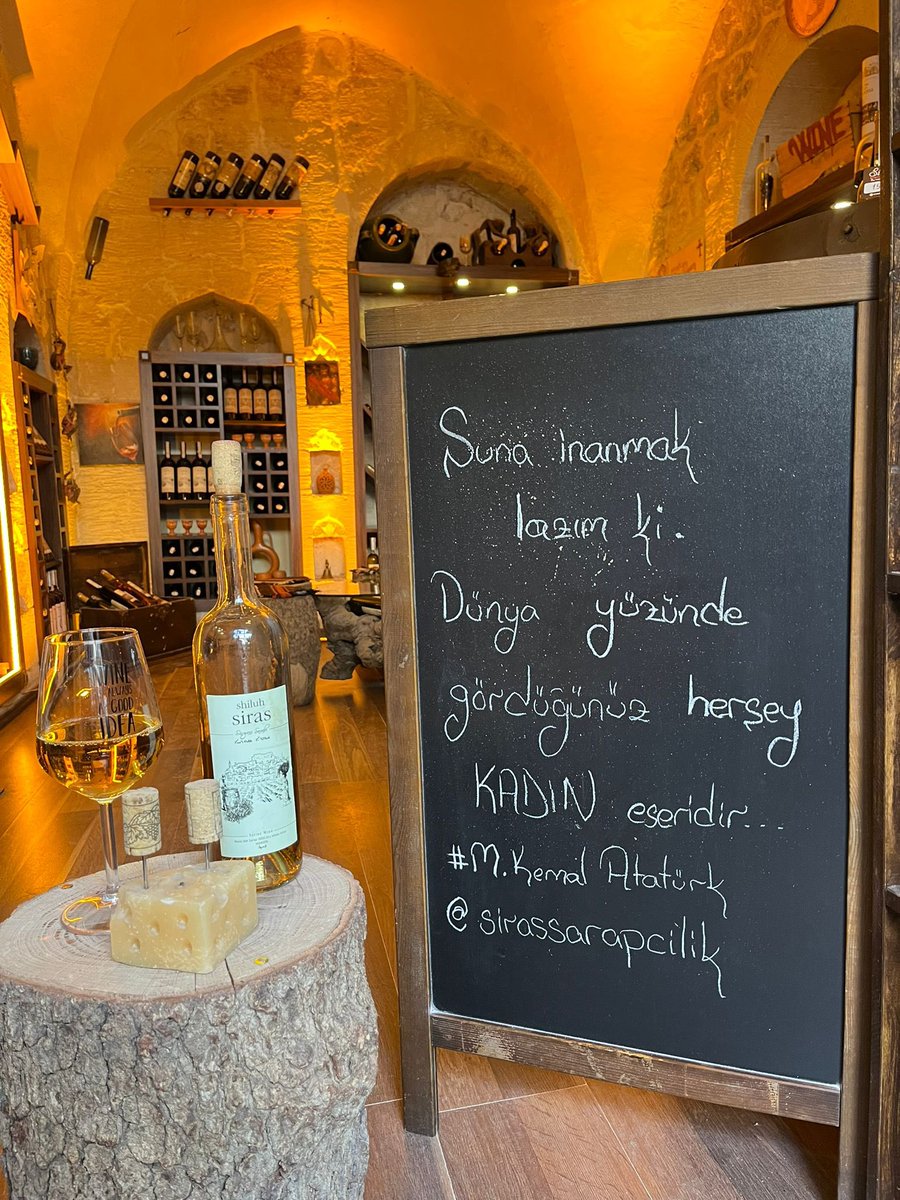 Şuna inanmak
lazım ki.
Dünya yüzünde
gördüğünüz herşey
KADIN eseridir...
#M.Kemal Atatürk
@sirassarapcilik
shiluh
siras
WINE
ALWAYS
GOOD
IDEA
WINE